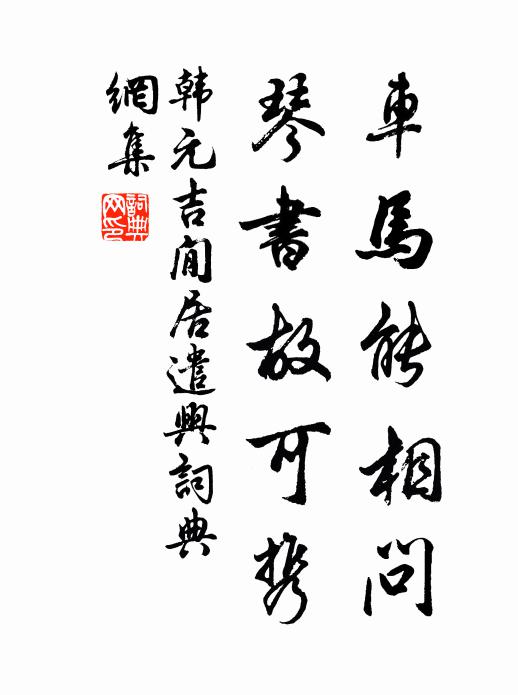 車馬能相問
琴書故可携
韩元吉閒居遣興詞典
網集
詞典
网印